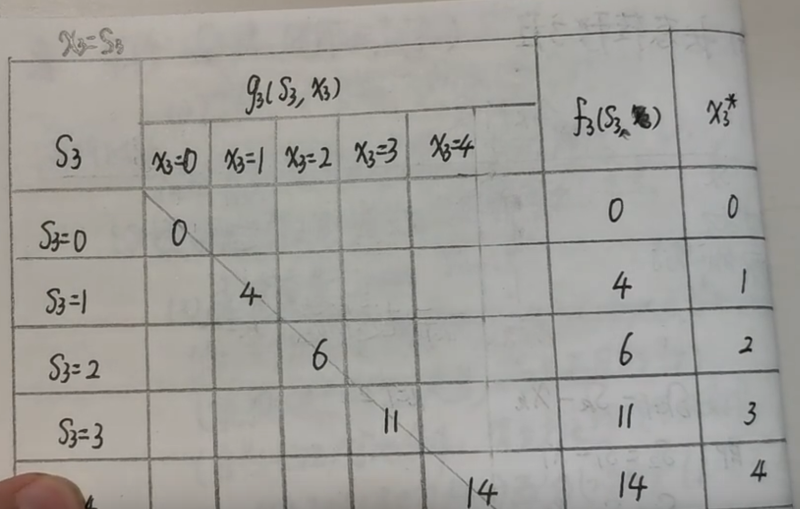 x₃=S₃
S₃ g₃(S₃, x₃) f₃(S₃) x₃*
x₃=0 x₃=1 x₃=2 x₃=3 x₃=4
S₃=0 0 0 0
S₃=1 4 4 1
S₃=2 6 6 2
S₃=3 11 11 3
4 14 14 4